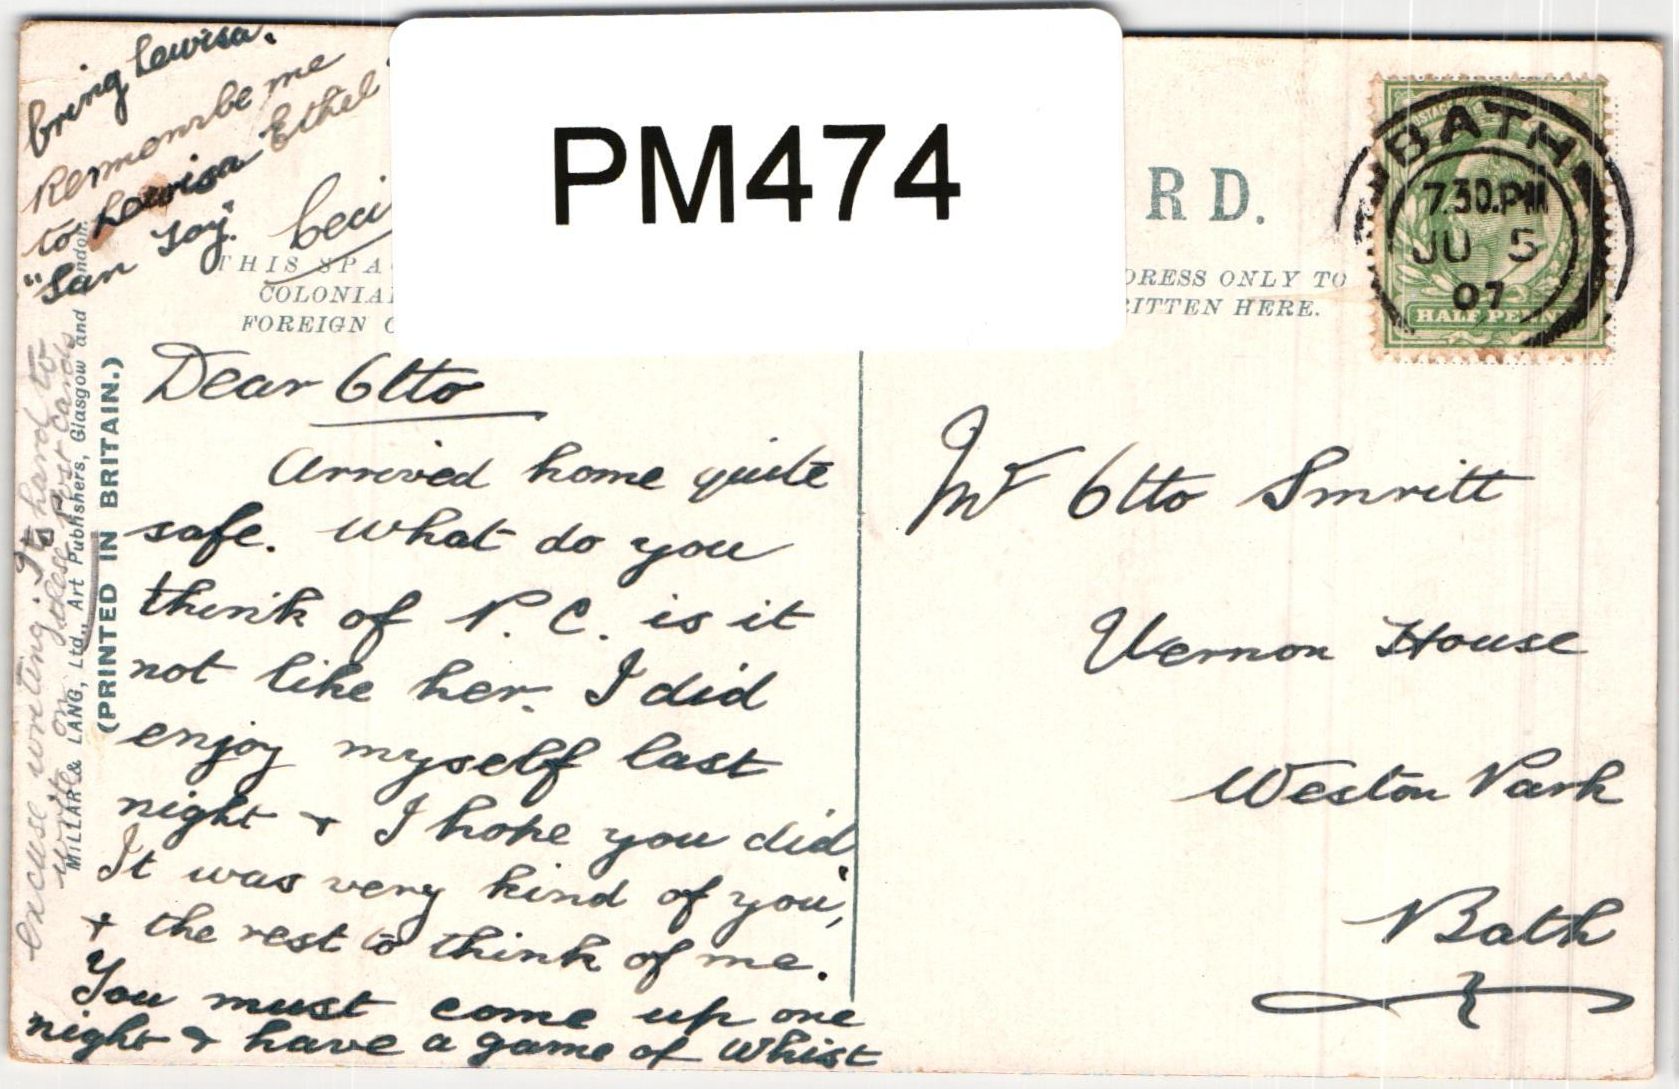 bring Lewisa.
Remembe me
to Lewisa Ethel
"San Toy".
PM474
RD.
THIS SPA
COLONIAL
FOREIGN
DRESS ONLY TO
RITTEN HERE.
BATH
7.30.PM
JU 5
07
HALF PENN
Dear Otto
Arrived home quite
safe. What do you
think of P. C. is it
not like her. I did
enjoy myself last
night + I hope you did
It was very kind of you,
+ the rest to think of me.
You must come up one
night + have a game of Whist
excuse writing its hard to
write on these Post cards
MILLAR & LANG, Ltd., Art Publishers, Glasgow and London.
(PRINTED IN BRITAIN.)
Mr Otto Smritt
Vernon House
Weston Park
Bath